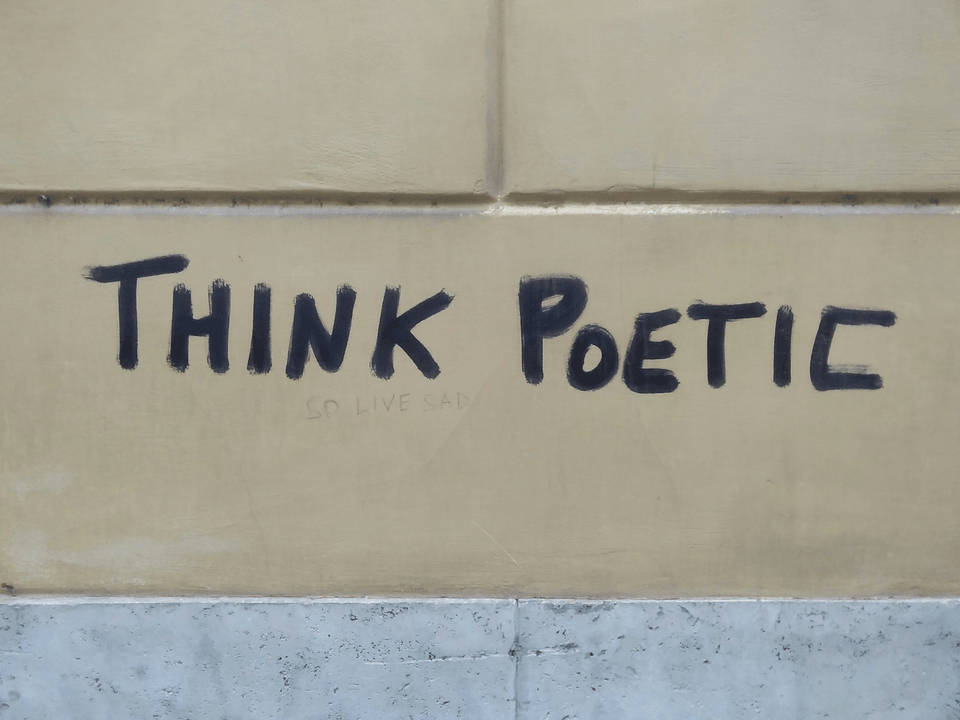 THINK POETIC
SO LIVE SAD